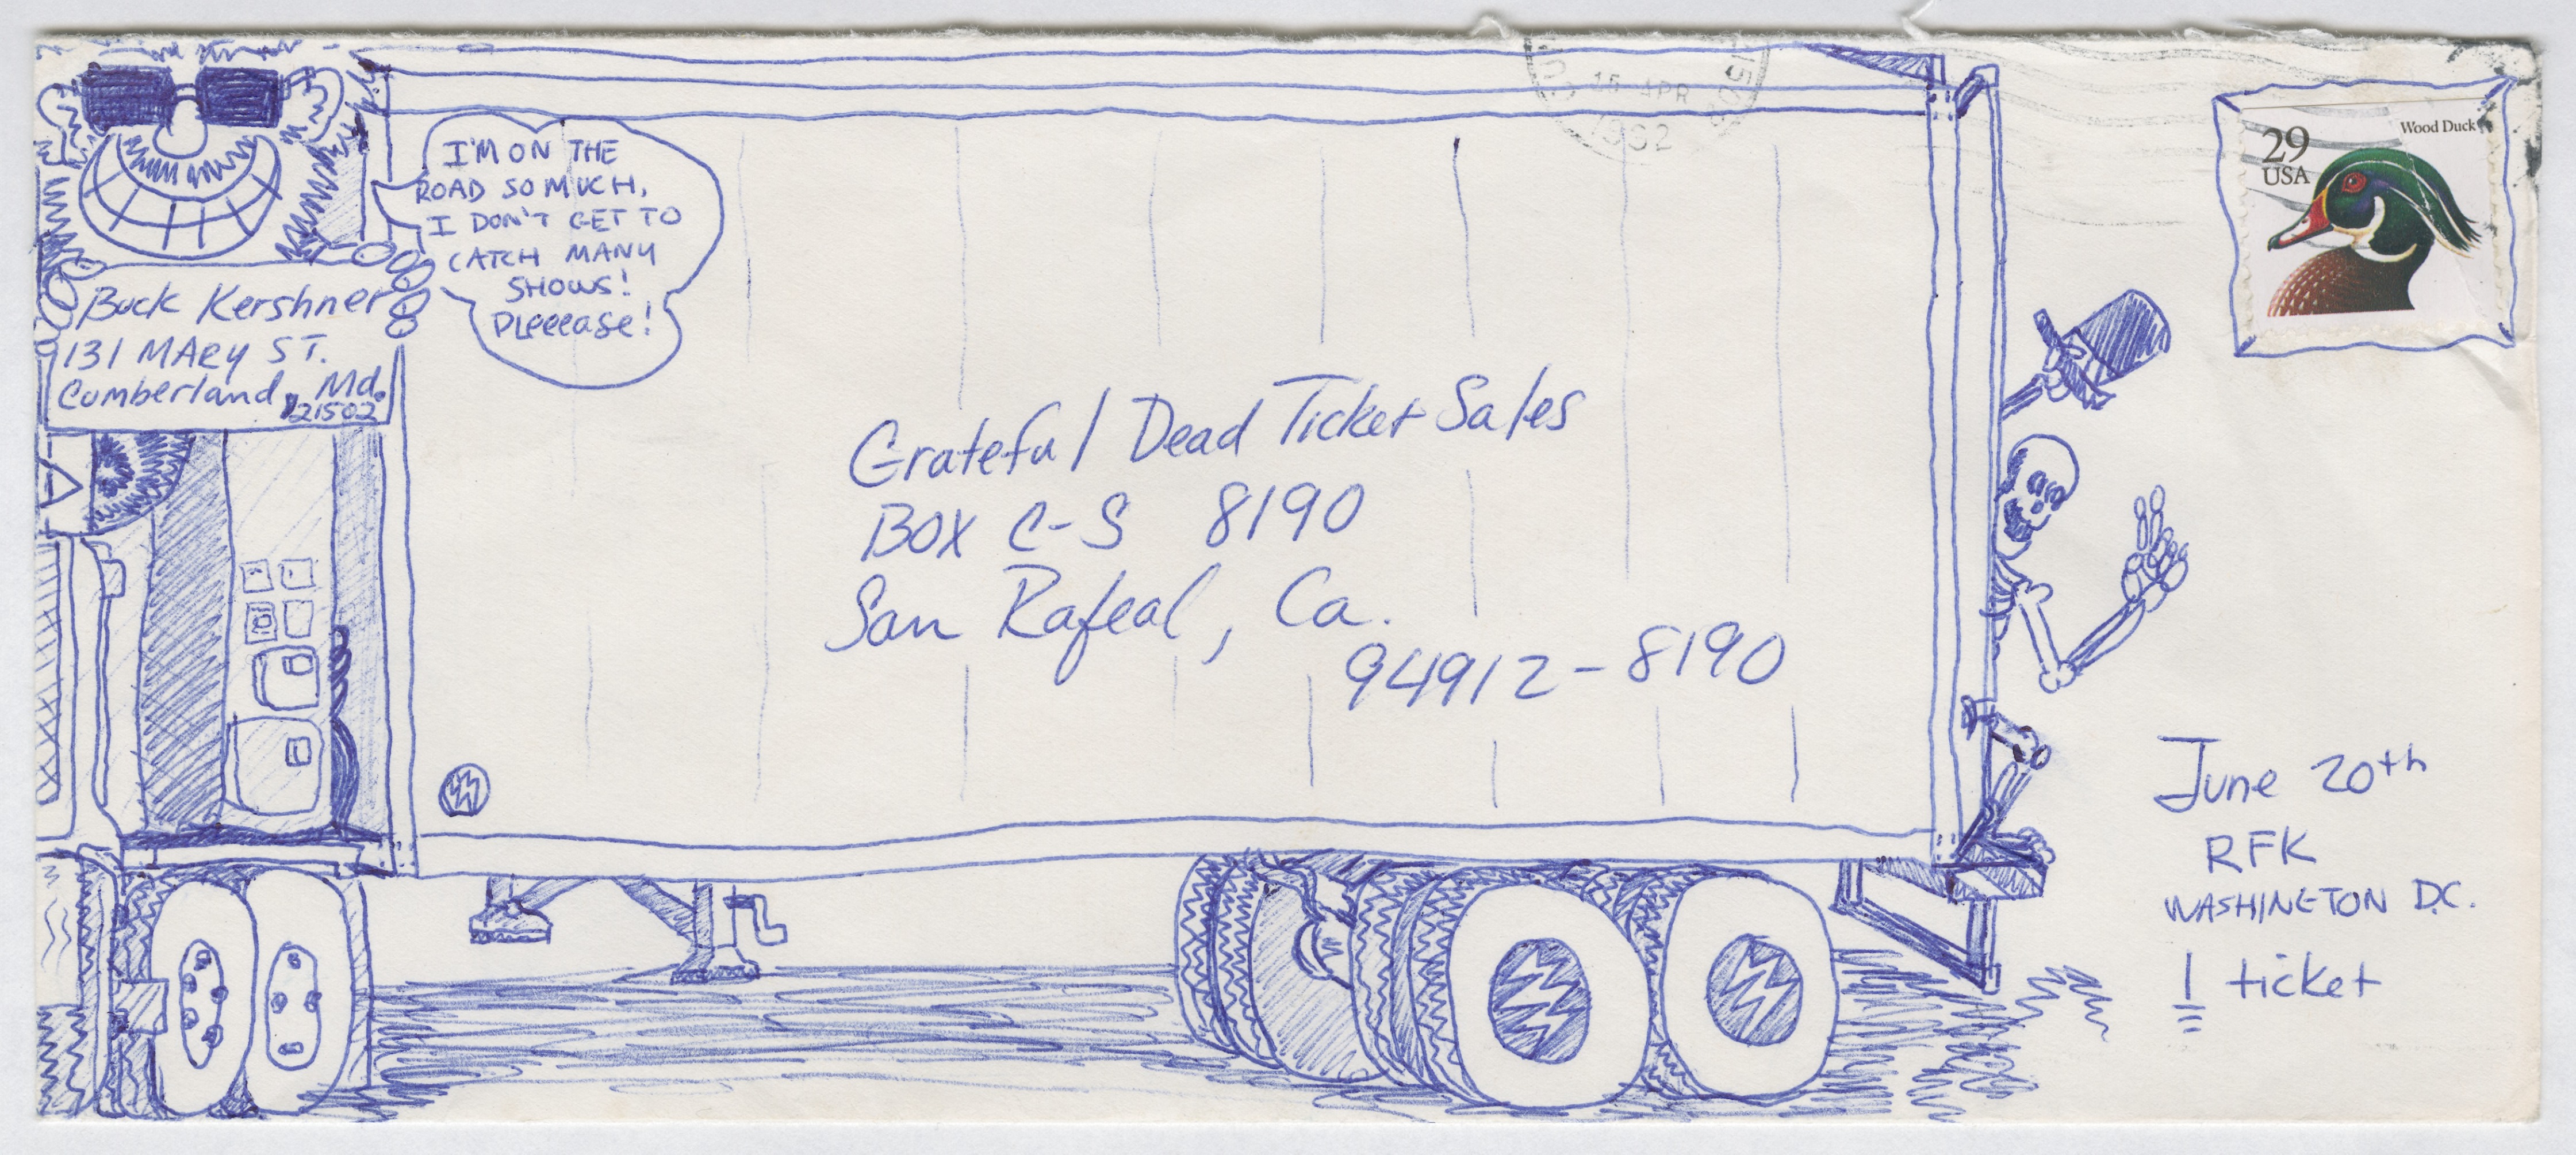 I'M ON THE
ROAD SO MUCH,
I DON'T GET TO
CATCH MANY
SHOWS!
PLeeease!
Buck Kershner
131 MARY ST.
Cumberland, Md.
21502
Grateful Dead Ticket Sales
BOX C-S 8190
San Rafeal, Ca.
94912-8190
15 APR
1992
Wood Duck
29
USA
June 20th
RFK
WASHINGTON D.C.
1 ticket